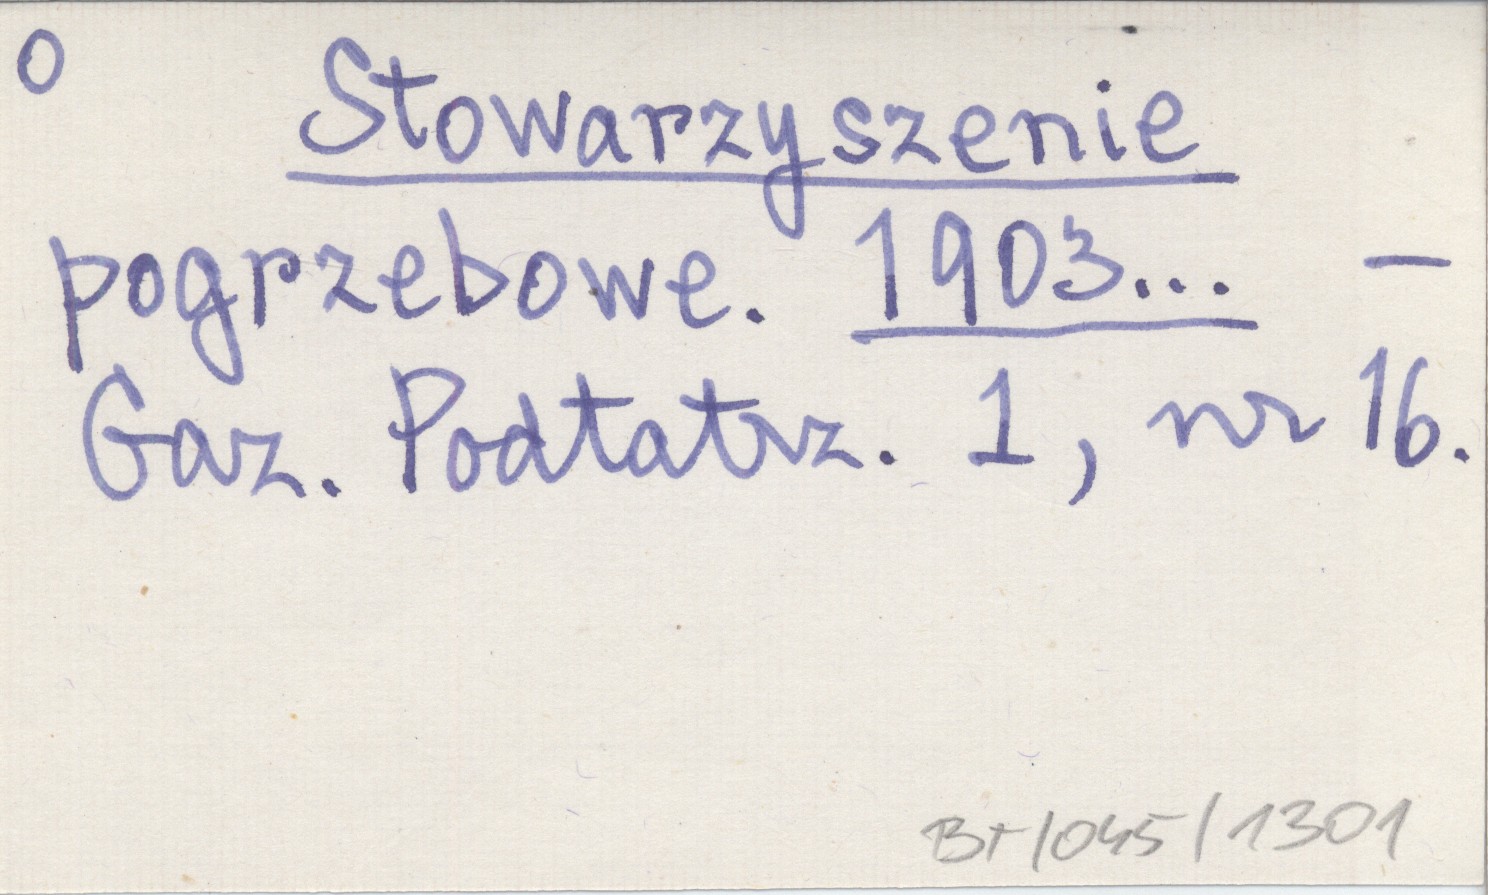 O Stowarzyszenie
pogrzebowe. 1903... —
Gaz. Podtatrz. 1, nr 16.
BT/045/1301